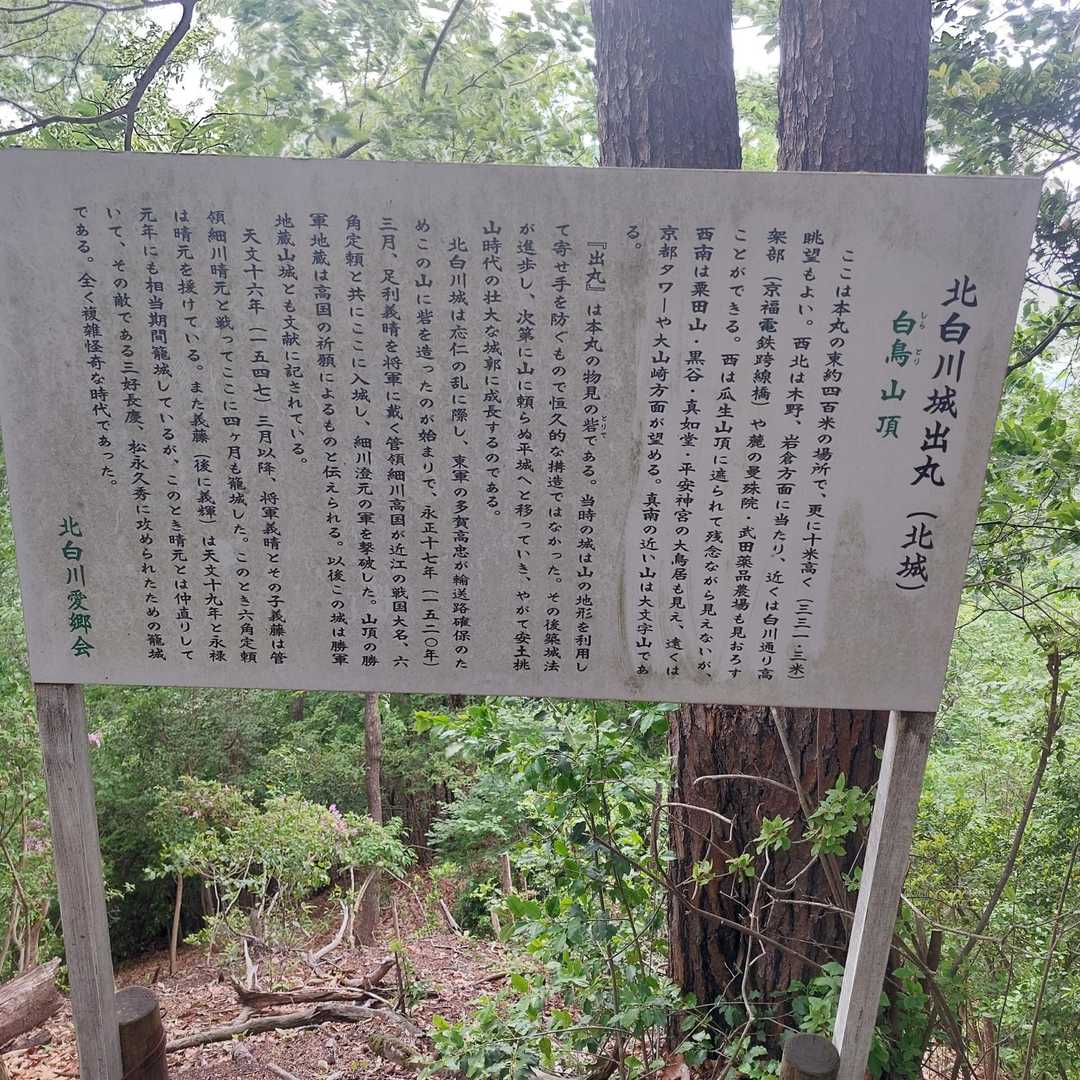 北白川城出丸(北城)
白鳥山頂
しら とり
ここは本丸の東約四百米の場所で、更に十米高く(三三一・三米)
眺望もよい。西北は木野、岩倉方面に当たり、近くは白川通り高
架部(京福電鉄跨線橋)や麓の曼殊院・武田薬品農場も見おろす
ことができる。西は瓜生山頂に遮られて残念ながら見えないが、
西南は粟田山・黒谷・真如堂・平安神宮の大鳥居も見え、遠くは
京都タワーや大山崎方面が望める。真南の近い山は大文字山であ
る。
『出丸』は本丸の物見の砦である。当時の城は山の地形を利用し
とりで
て寄せ手を防ぐもので恒久的な構造ではなかった。その後築城法
が進歩し、次第に山に頼らぬ平城へと移っていき、やがて安土桃
山時代の壮大な城郭に成長するのである。
北白川城は応仁の乱に際し、東軍の多賀高忠が輸送路確保のた
めこの山に砦を造ったのが始まりで、永正十七年(一五二〇年)
三月、足利義晴を将軍に戴く管領細川高国が近江の戦国大名、六
角定頼と共にここに入城し、細川澄元の軍を撃破した。山頂の勝
軍地蔵は高国の祈願によるものと伝えられる。以後この城は勝軍
地蔵山城とも文献に記されている。
天文十六年(一五四七)三月以降、将軍義晴とその子義藤は管
領細川晴元と戦ってここに四ヶ月も籠城した。このとき六角定頼
は晴元を援けている。また義藤(後に義輝)は天文十九年と永禄
元年にも相当期間籠城しているが、このとき晴元とは仲直りして
いて、その敵である三好長慶、松永久秀に攻められたための籠城
である。全く複雑怪奇な時代であった。
北白川愛郷会